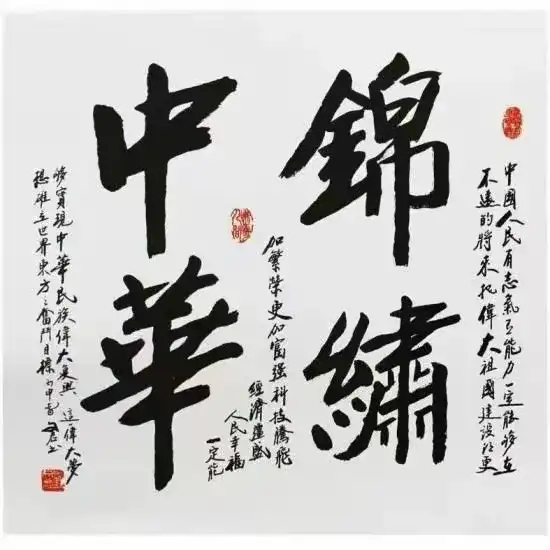 錦繡
中華
中國人民有志氣有能力一定能夠在
不遠的將來把偉大祖國建設得更
加繁榮更加富强科技騰飛
經濟建盛
人民幸福
一定能
够實現中華民族偉大复興這偉大夢
想雄立世界東方之奮鬥目標丙申